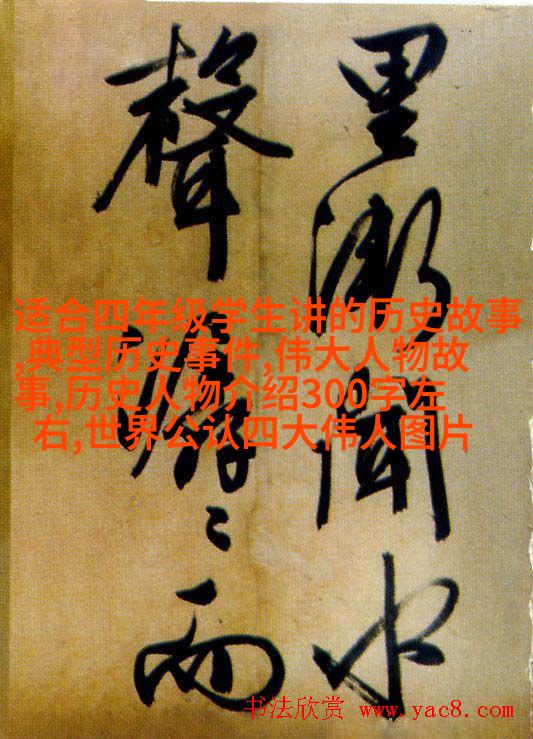 里漸聞水
聲潺〻而
适合四年级学生讲的历史故事
,典型历史事件,伟大人物故
事,历史人物介绍300字左
右,世界公认四大伟人图片
书法欣赏 www.yac8.com